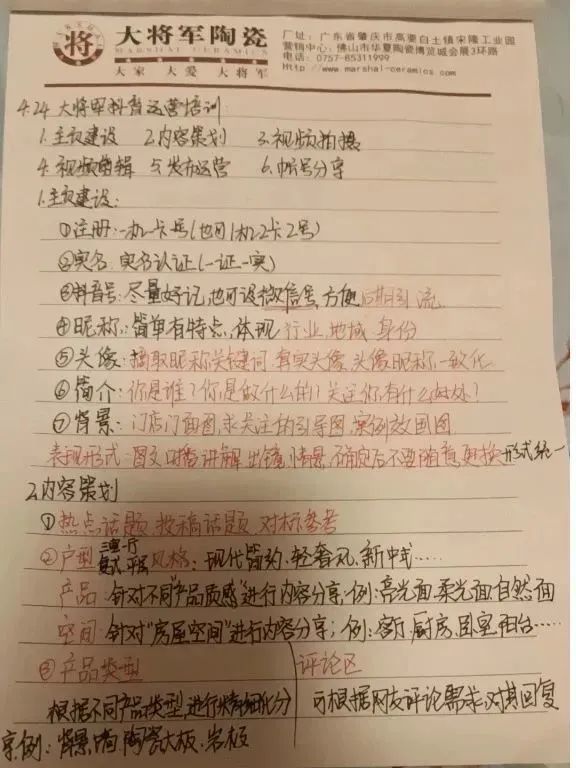 将
大将军陶瓷
MARSHAL CERAMICS
大家 大爱 大将军
厂址：广东省肇庆市高要白土镇宋隆工业园
营销中心：佛山市华夏陶瓷博览城会展3环路
电话：0757-85311999
Http://www.marshal-ceramics.com
4.24 大将军抖音运营培训
1.主页建设 2.内容策划 3.视频拍摄
4.视频剪辑 5.发布运营 6.帐号分享
1.主页建设：
①注册：一机一卡一号(也可1机2卡2号)
②实名：实名认证(一证一实)
③抖音号：尽量好记,也可设微信号,方便后期引流
④昵称：简单有特点,体现行业,地域,身份
⑤头像：摘取昵称关键词,真实头像,头像昵称一致化
⑥简介：你是谁?你是做什么的?关注你有什么好处?
⑦背景：门店门面图,求关注的引导图,案例效果图
表现形式：图文,口播,讲解,出镜,情景,确定后不要随意更换,形式统一
2.内容策划
①热点话题,投稿话题,对标参考
②户型 三室一厅 复式,平层 风格：现代简约、轻奢风、新中式……
产品：针对不同"产品质感"进行内容分享;例：亮光面,柔光面,自然面
空间：针对"房屋空间"进行内容分享;例：客厅,厨房,卧室,阳台……
③产品类型
根据不同产品类型,进行精细化分
案例：背景墙,陶瓷大板、岩板
评论区
可根据网友评论需求,对其回复